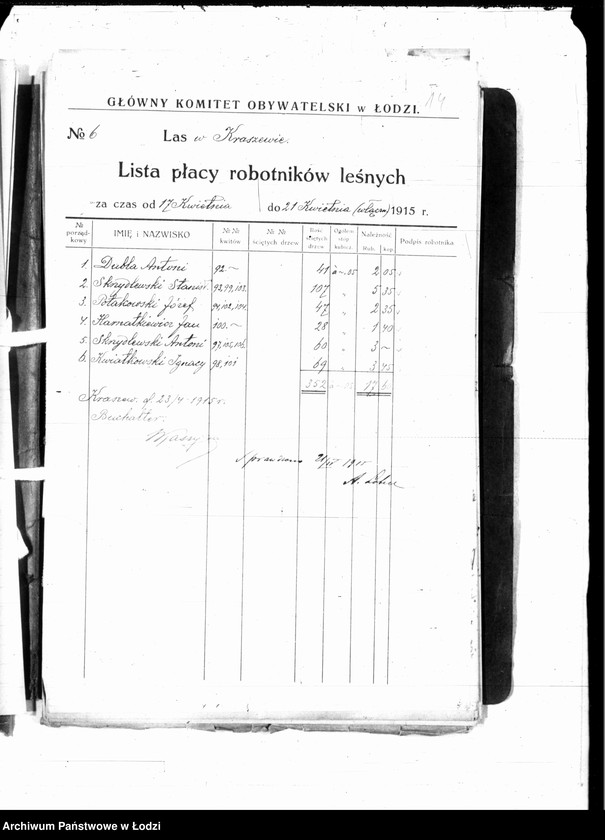 14
GŁÓWNY KOMITET OBYWATELSKI w ŁODZI.
№ 6 Las w Kraszewie.
Lista płacy robotników leśnych
za czas od 17 Kwietnia do 21 Kwietnia (włączn) 1915 r.
№ porząd-kowy IMIĘ i NAZWISKO №№ kwitów №№ ściętych drzew Ilość ściętych drzew Ogólem stóp kubicz. Należność Rub. kop. Podpis robotnika
1. Dubla Antoni 92.— 41 à -.05 2 05
2. Skrydlewski Stanisł. 93,99,103. 107 „ 5 35
3. Potakowski Józef 94,102,104. 47 „ 2 35
4. Harnatkiewicz Jan 100.— 28 „ 1 40
5. Skrydlewski Antoni 97,105,106. 60 „ 3 —
6. Kwiatkowski Ignacy 98,101 69 „ 3 45
352 17 60
Kraszew. d 23/4 - 1915 r.
Buchalter:
Sprawdzono 21/IV 1915
A.
Archiwum Państwowe w Łodzi